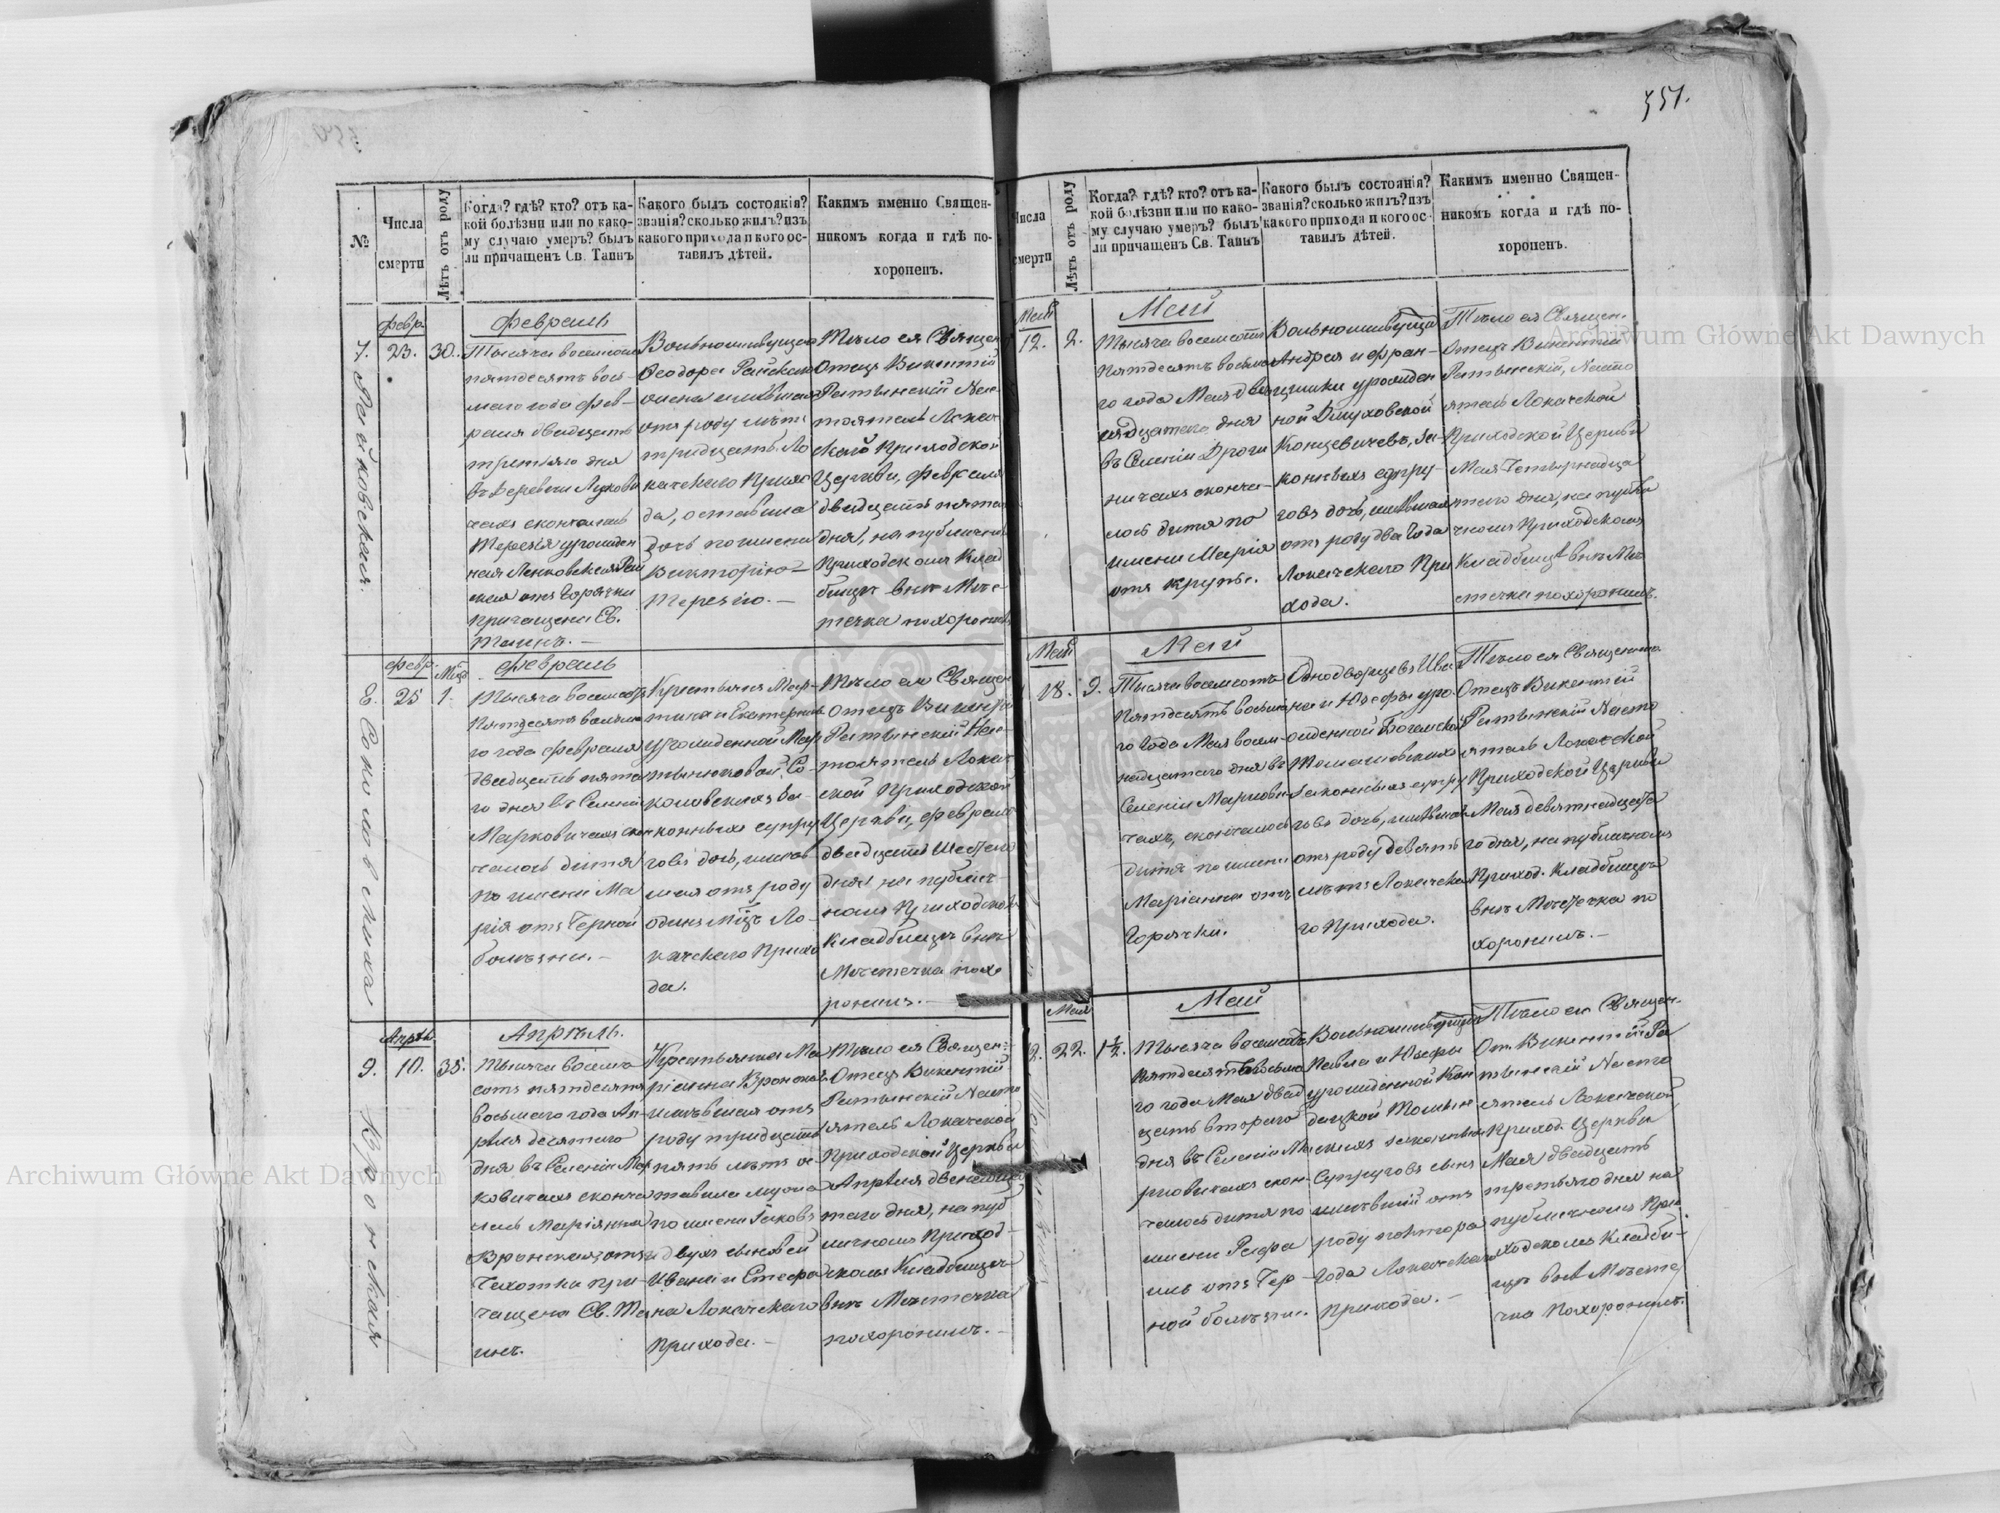 351.
№
Числа
смерти
Лѣтъ отъ роду
Когда? гдѣ? кто? отъ ка-
кой болѣзни или по како-
му случаю умеръ? былъ
ли причащенъ Св. Таинъ
Какого былъ состоянія?
званія? сколько жилъ? изъ
какого прихода и кого ос-
тавилъ дѣтей.
Какимъ именно Священ-
никомъ когда и гдѣ по-
хороненъ.
февр.
7.
23.
30.
Февраль
Тысяча восемсотъ
пятдесятъ вось-
маго года фев-
раля двадцать
третьяго дня
въ деревни
скончалась
Терезія урожден
ная
отъ горячки
причащена Св.
Таинъ. —
Вольноживущаго
Ѳеодора
жена жившая
отъ роду лѣтъ
тридцать. Ло
качскаго прихо
да, оставила
дочь по имени
Викторію
Терезію. —
Тѣло ея Священ
Отецъ Викентій
Ратынскій Нас-
тоятель Локач
ской Приходской
Церкви, февраля
двадцать пятаго
дня, на публичномъ
Приходскомъ Клад
бищѣ внѣ Мѣс-
течка похоронилъ
февр.
Мцъ
8.
25
1.
Соколовскиха
Февраль
Тысяча восемсотъ
Пятдесятъ восьма
го года февраля
двадцать пята
го дня въ Селеніи
Марковичахъ скон
чалось дитя
по имени Ма
рія отъ Черной
болѣзни. —
Крестьянъ Мар-
тина и Екатерины
урожденной Мар
Со-
коловскихъ за-
конныхъ супру
говъ дочь, жив
шая отъ роду
одинъ Мцъ Ло-
качскаго Прихо
да.
Тѣло ею Священ
Отецъ Викентій
Ратынскій Нас-
тоятель Локач
ской Приходской
Церкви, февраля
двадцать шестаго
дня, на публич-
номъ Приходскомъ
Кладбищѣ внѣ
Мѣстечка похо
ронилъ. —
Апрѣль
9.
10.
35.
Вронская
Апрѣль.
Тысяча восемь
сотъ пятдесятъ
восьмаго года Ап-
рѣля десятаго
дня въ Селеніи Мар
ковичахъ сконча
лась Маріянна
Вронская отъ
Чахотки при-
чащена Св. Та
инъ.
Крестьянка Ма
ріянна Вронская
жившая отъ
роду тридцать
пять лѣтъ ос
тавила мужа
по имени Іаковъ
и двухъ сыновей
Ивана и Стефа
на Локачскаго
Прихода. —
Тѣло ея Священ-
Отецъ Викентій
Ратынскій Насто
ятель Локачской
Приходской Церкви
Апрѣля двенадца
таго дня, на пуб
личномъ Приход-
скомъ Кладбищѣ
внѣ Мѣстечка
похоронилъ. —
Числа
смерти
Лѣтъ отъ роду
Когда? гдѣ? кто? отъ ка-
кой болѣзни или по како-
му случаю умеръ? былъ
ли причащенъ Св. Таинъ
Какого былъ состоянія?
званія? сколько жилъ? изъ
какого прихода и кого ос-
тавилъ дѣтей.
Какимъ именно Священ-
никомъ когда и гдѣ по-
хороненъ.
Май
12.
2.
Май
Тысяча восемсотъ
Пятдесятъ восьма
го года Мая двѣ
надцатаго дня
въ Селеніи Дроги
ничахъ сконча-
лось дитя по
имени Марія
отъ крупы.
Вольноживущихъ
Андрея и Фран-
цишки урожден
ной
Концевичевъ, за-
конныхъ супру-
говъ дочь, жившая
отъ роду два года
Локачскаго При
хода.
Тѣло ея Священ.
Отецъ Викентій
Ратынскій, Насто
ятель Локачской
Приходской Церкви
Мая Четырнадца
таго дня, на публи
чномъ Приходскомъ
Кладбищѣ внѣ Мѣ
стечка похоронилъ.
Май
18.
9.
Май
Тысяча восемсотъ
Пятдесятъ восьма
го года Мая восем-
надцатаго дня въ
Селеніи Маркови-
чахъ, скончалось
дитя по имени
Маріанна отъ
Горячки.
Однодворцевъ Ива
на и Юзефы уро-
жденной
Томашовскихъ
законныхъ супру
говъ дочь, жившая
отъ роду девять
лѣтъ Локачска
го Прихода.
Тѣло ея Священни
Отецъ Викентій
Ратынскій Насто
ятель Локачской
Приходской Церкви
Мая девятнадцата
го дня, на публичномъ
Приход. Кладбищѣ
внѣ Мѣстечка по
хоронилъ. —
Май
2.
22.
1½.
Май
Тысяча восемсотъ
Пятдесятъ восьма
го года Мая двад
цать втораго
дня въ Селеніи Ма
рковичахъ скон-
чалось дитя по
имени Рафа
илъ отъ Чер-
ной болѣзни.
Вольноживущихъ
Павла и Юзефы
урожденной
законныхъ
Супруговъ сынъ
жившій отъ
роду полтора
года Локачскаго
Прихода. —
Тѣло ею Священ.
От. Викентій Ра
тынскій Насто
ятель Локачской
Приход. Церкви
Мая двадцать
третьяго дня на
публичномъ При
ходскомъ Кладби-
щѣ внѣ Мѣсте
чка Похоронилъ.
Archiwum Główne Akt Dawnych
Archiwum Główne Akt Dawnych